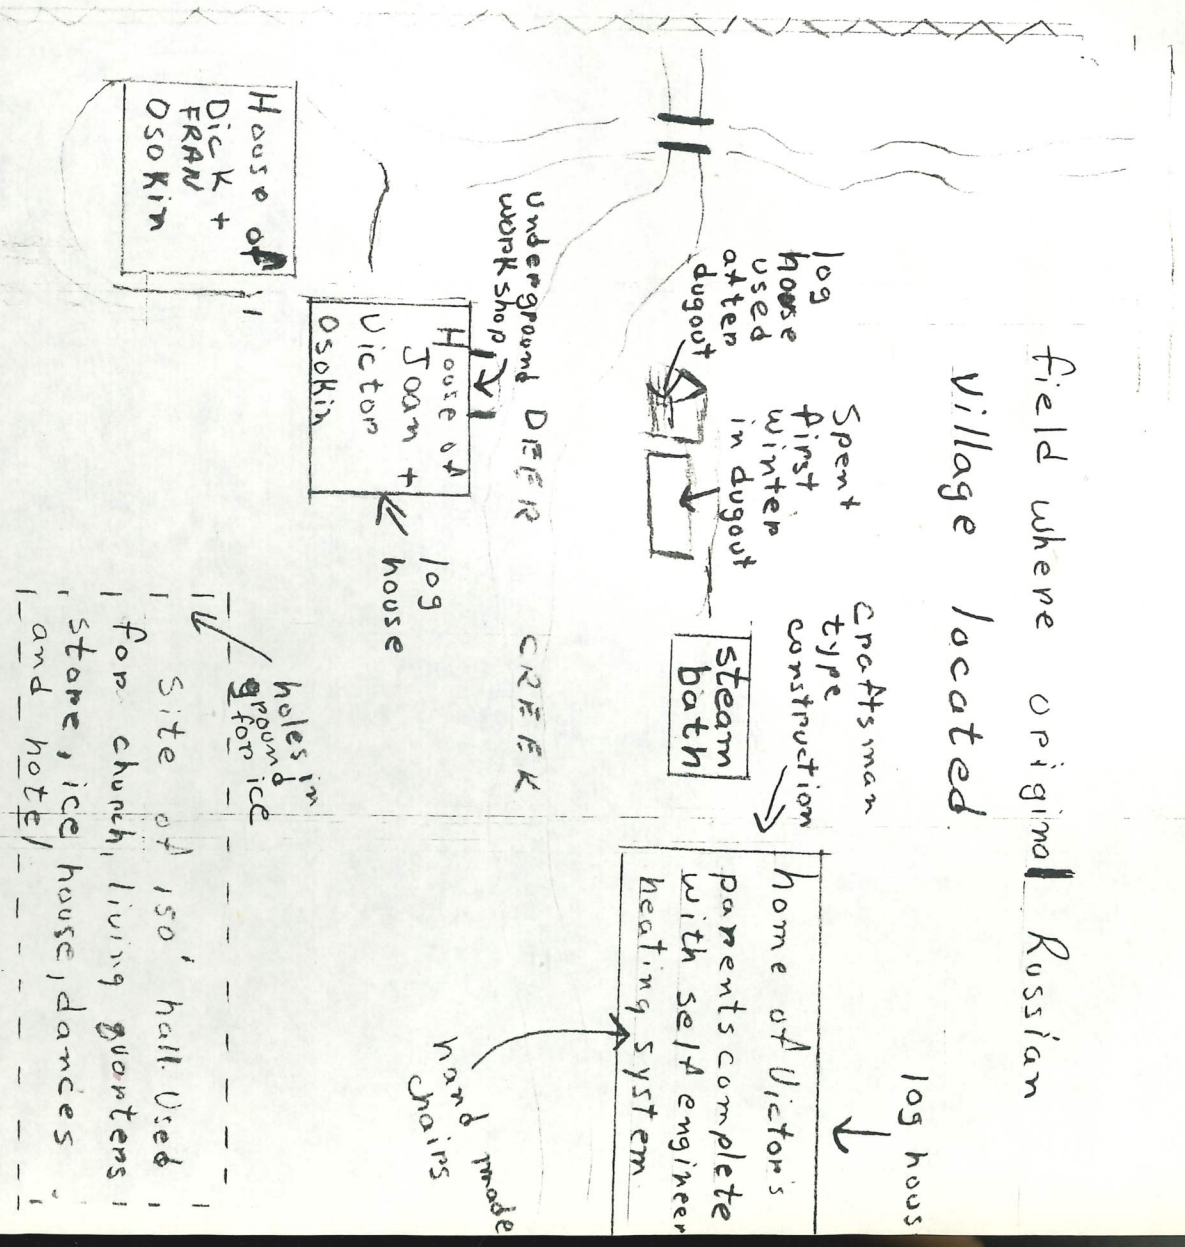 field where original Russian
village located
log hous
craftsman
type
construction
home of Victor's
parents complete
with self engineer
heating system
hand made
chairs
steam
bath
Spent
first
winter
in dugout
log
house
used
after
dugout
DEER CREEK
underground
workshop
House of
Joan +
Victor
Osokin
log
house
House of
Dick +
FRAN
Osokin
holes in
ground
for ice
Site of 150' hall. Used
for church, living quarters
store, ice house, dances
and hotel